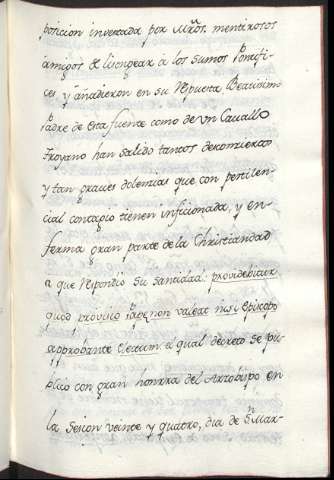 posicion inventada por Mros. mentirosos
amigos de lisongear a los sumos Pontifi
ces y añadieron en su Respuesta Beatisimo
Padre de esta fuente como de un Cauallo
troyano han salido tantos
y tan graues dolencias que con pestilen
cial contagio tienen inficionada, y en
ferma gran parte de la Christiandad
a que Respondio su santidad: prouidebitur
quod prouisio non valeat nisi Episcopo
approbante el qual decreto se pu
blico con gran honrra del Arzobispo en
la sesion veinte y quatro, dia de Sn Mar-